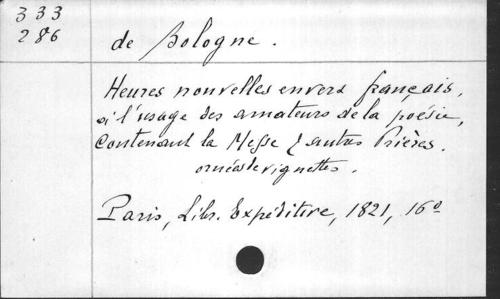 333
286
de Bologne.
Heures nouvelles en vers français,
à l'usage des amateurs de la poésie,
Contenant la Messe & autres Prières.
ornées de vignettes.
Paris, Libr. Expéditive, 1821, 16º